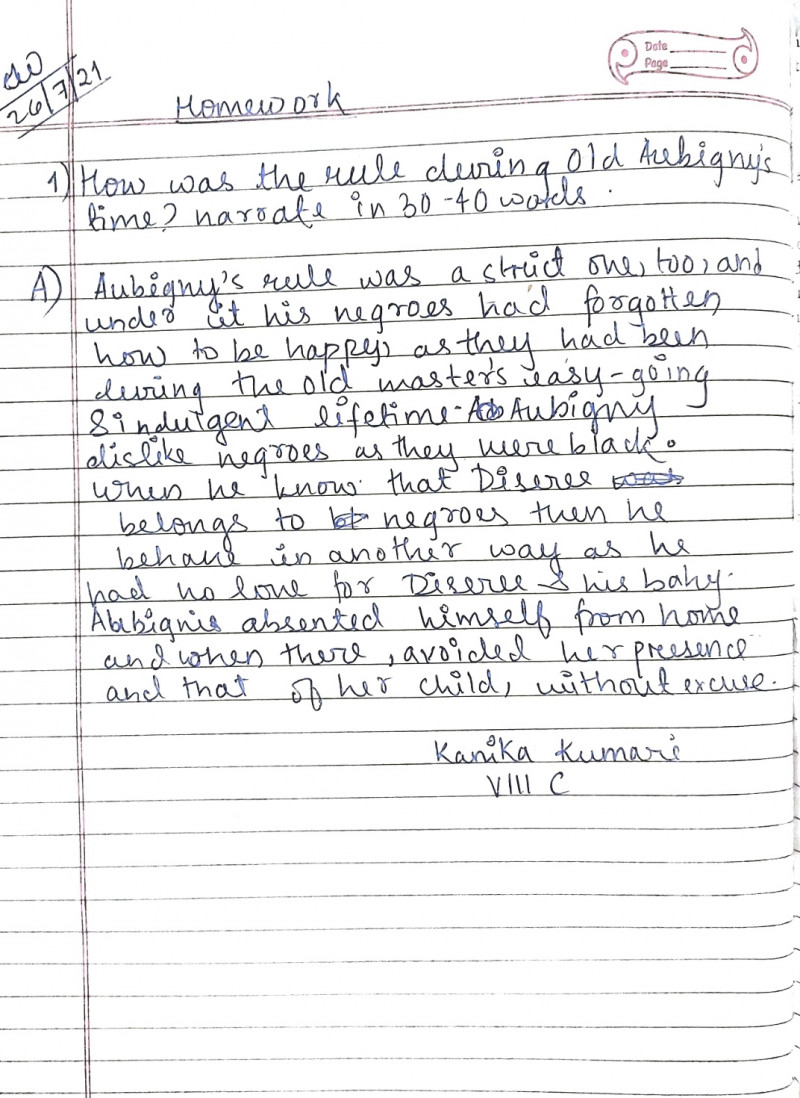 26/7/21
Date
Page
Homework
1) How was the rule during Old Aubigny's
time? narrate in 30-40 words.
A) Aubigny's rule was a strict one, too, and
under it his negroes had forgotten
how to be happy, as they had been
during the old master's easy-going
& indulgent lifetime. Aubigny
dislike negroes as they were black.
When he know that Diseree
belongs to negroes then he
behave in another way as he
had no love for Diseree & his baby.
Abbignis absented himself from home
and when there, avoided her preesence
and that of her child, without excuse.
Kanika Kumari
VIII C